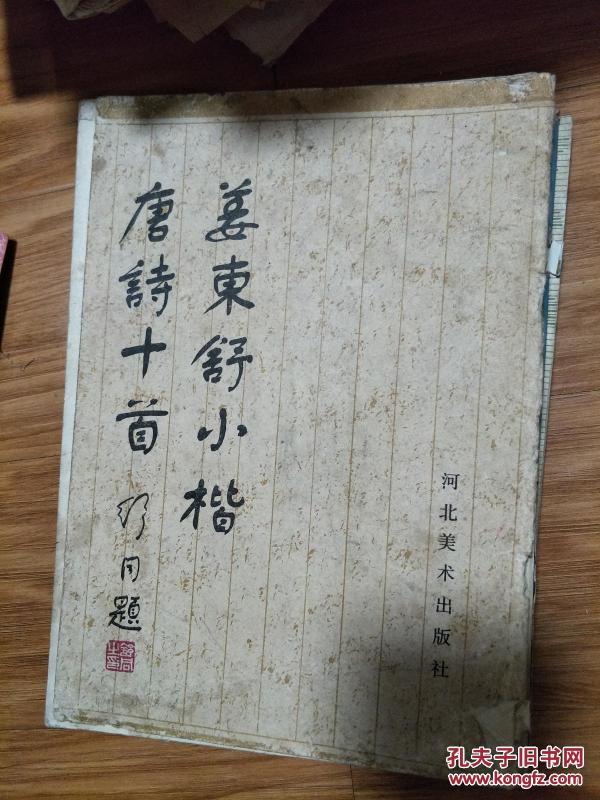 姜東舒小楷
唐詩十首
舒同題
舒同之印
河北美术出版社
孔夫子旧书网
www.kongfz.com